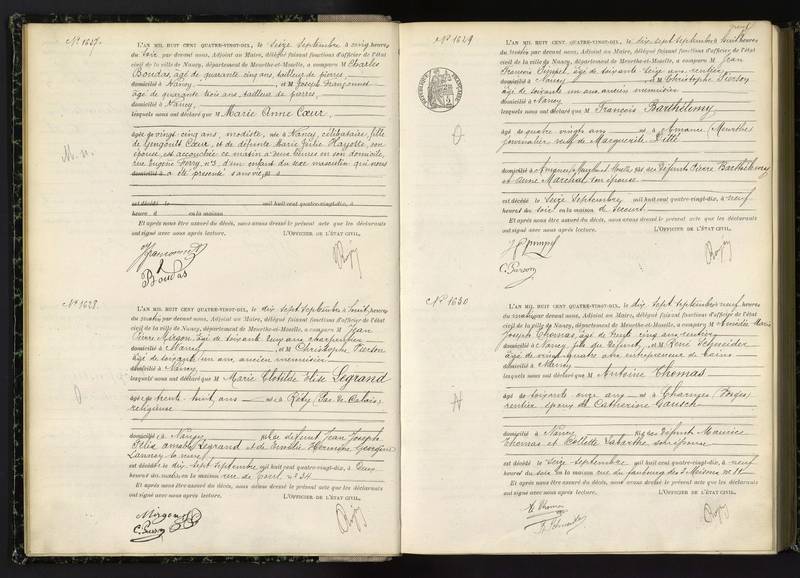 N° 1627.
L'AN MIL HUIT CENT QUATRE-VINGT-DIX, le seize Septembre à cinq heures
du soir par devant nous, Adjoint au Maire, délégué faisant fonctions d'officier de l'état
civil de la ville de Nancy, département de Meurthe-et-Moselle, a comparu M Charles
Boudas, âgé de quarante cinq ans, tailleur de pierres,
domicilié à Nancy, et M Joseph
âgé de quarante trois ans, tailleur de pierres,
domicilié à Nancy,
lesquels nous ont déclaré que M Marie Anne Cœur,
âgé de vingt cinq ans, modiste, née à Nancy, célibataire, fille
de Gengoult Cœur, et de défunte Marie Julie Hayotte, son
épouse, est accouchée ce matin à heures en son domicile,
rue n° 3 d'un enfant du sexe masculin qui nous
domicilié à a été présenté sans vie,
est décédé le mil huit cent quatre-vingt-dix, à
heure d en la maison
Et après nous être assuré du décès, nous avons dressé le présent acte que les déclarants
ont signé avec nous après lecture. L'OFFICIER DE L'ÉTAT CIVIL,
Boudas
N° 1628.
L'AN MIL HUIT CENT QUATRE-VINGT-DIX, le dix sept septembre à huit heures
du matin par devant nous, Adjoint au Maire, délégué faisant fonctions d'officier de l'état
civil de la ville de Nancy, département de Meurthe-et-Moselle, a comparu M Jean
Pierre Mirgon, âgé de soixante cinq ans, charpentier
domicilié à Nancy, et M Christophe Pierson
âgé de soixante un ans, ancien menuisier
domicilié à Nancy
lesquels nous ont déclaré que M Marie Clotilde Elise Legrand
âgé de trente huit ans née à Réty (Pas de Calais)
religieuse
domicilié à Nancy fille de défunt Jean Joseph
Félix Legrand et de Hermine Georgine
Lannoy sa veuve
est décédé le dix sept septembre mil huit cent quatre-vingt-dix, à deux
heures du matin en la maison rue de Toul, n° 24
Et après nous être assuré du décès, nous avons dressé le présent acte que les déclarants
ont signé avec nous après lecture. L'OFFICIER DE L'ÉTAT CIVIL,
Mirgon
C. Pierson
N° 1629
L'AN MIL HUIT CENT QUATRE-VINGT-DIX, le dix sept septembre à huit heures
du matin par devant nous, Adjoint au Maire, délégué faisant fonctions d'officier de l'état
civil de la ville de Nancy, département de Meurthe-et-Moselle, a comparu M Jean
François âgé de soixante seize ans, rentier
domicilié à Nancy et M Christophe Pierson
âgé de soixante un ans, ancien menuisier
domicilié à Nancy
lesquels nous ont déclaré que M François Barthélemy
âgé de quatre vingts ans né à Amance (Meurthe)
journalier, veuf de Marguerite
domicilié à Meurthe et Moselle fils des défunts Pierre Barthélemy
et Anne Marchal son épouse
est décédé le seize Septembre mil huit cent quatre-vingt-dix, à neuf
heures du soir en la maison de secours
Et après nous être assuré du décès, nous avons dressé le présent acte que les déclarants
ont signé avec nous après lecture. L'OFFICIER DE L'ÉTAT CIVIL,
C. Pierson
N° 1630
L'AN MIL HUIT CENT QUATRE-VINGT-DIX, le dix sept septembre à neuf heures
du matin par devant nous, Adjoint au Maire, délégué faisant fonctions d'officier de l'état
civil de la ville de Nancy, département de Meurthe-et-Moselle, a comparu M Marie
Joseph Thomas, âgé de trente cinq ans, rentier
domicilié à Nancy, fils du défunt, et M René Schneider
âgé de vingt quatre ans entrepreneur de bains
domicilié à Nancy
lesquels nous ont déclaré que M Antoine Thomas
âgé de soixante onze ans né à Charmes (Vosges)
rentier époux de Catherine Gausch
domicilié à Nancy fils des défunts Maurice
Thomas et Collette Labarthe son épouse
est décédé le seize septembre mil huit cent quatre-vingt-dix, à neuf
heures du soir en la maison rue du faubourg des 3 Maisons n°
Et après nous être assuré du décès, nous avons dressé le présent acte que les déclarants
ont signé avec nous après lecture. L'OFFICIER DE L'ÉTAT CIVIL,
Thomas
Schneider